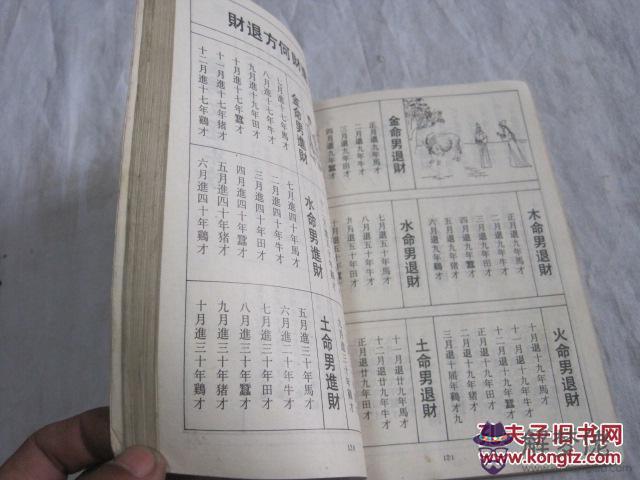 金命男退財
正月退九年馬才
二月退九年牛才
三月退九年田才
四月退九年蠶才
木命男退財
正月退九年馬才
二月退九年牛才
三月退九年田才
四月退九年蠶才
五月退九年猪才
六月退九年鷄才
水命男退財
七月退五十年馬才
八月退五十年牛才
九月退五十年田才
火命男退財
十月退十九年馬才
十一月退十九年牛才
十二月退十九年蠶才
正月退十九年田才
二月退十九年猪才
土命男退財
十一月退廿九年馬才
十二月退廿九年牛才
正月退廿九年田才
121
財何方退財
金命男進財
七月進十七年馬才
八月進十七年牛才
九月進十九年田才
十月進十七年蠶才
十一月進十七年猪才
十二月進十七年鷄才
水命男進財
七月進四十年馬才
二月進四十年牛才
三月進四十年田才
四月進四十年蠶才
五月進四十年猪才
六月進四十年鷄才
土命男進財
五月進三十年馬才
六月進二十年牛才
七月進三十年田才
八月進三十年蠶才
九月進二十年猪才
十月進三十年鷄才
120
夫子旧书网
www.kongfz.com